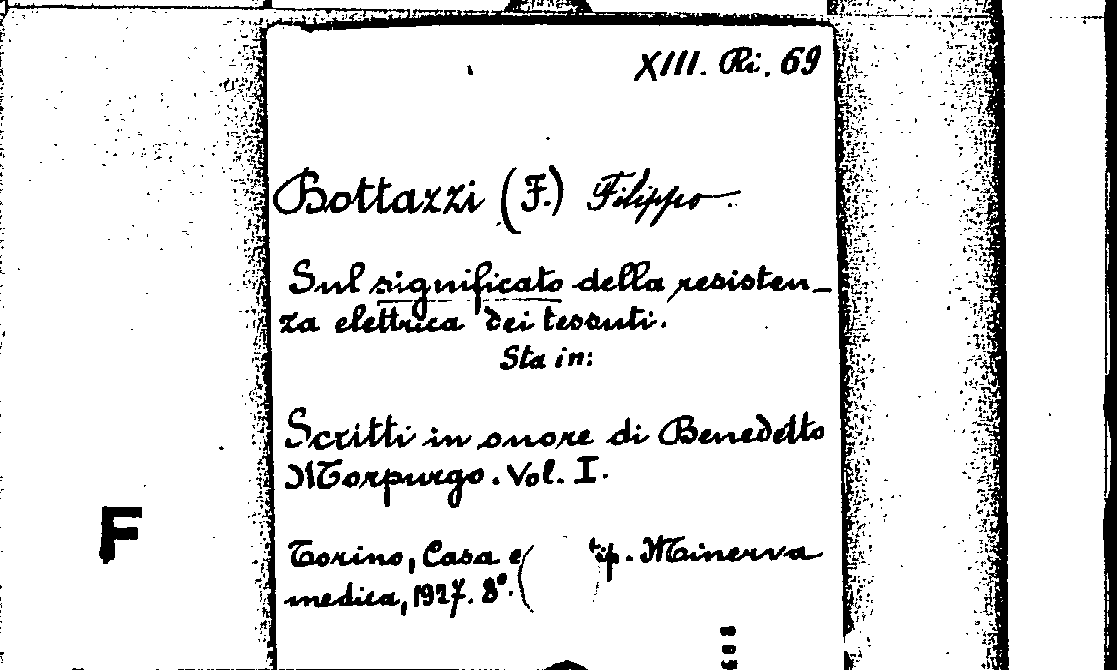 XIII. Ri. 69
Bottazzi (F.) Filippo
Sul significato della resisten-
za elettrica dei tessuti.
Sta in:
Scritti in onore di Benedetto
Morpurgo. Vol. I.
F
Torino, Casa e tip. Minerva
medica, 1927. 8°.